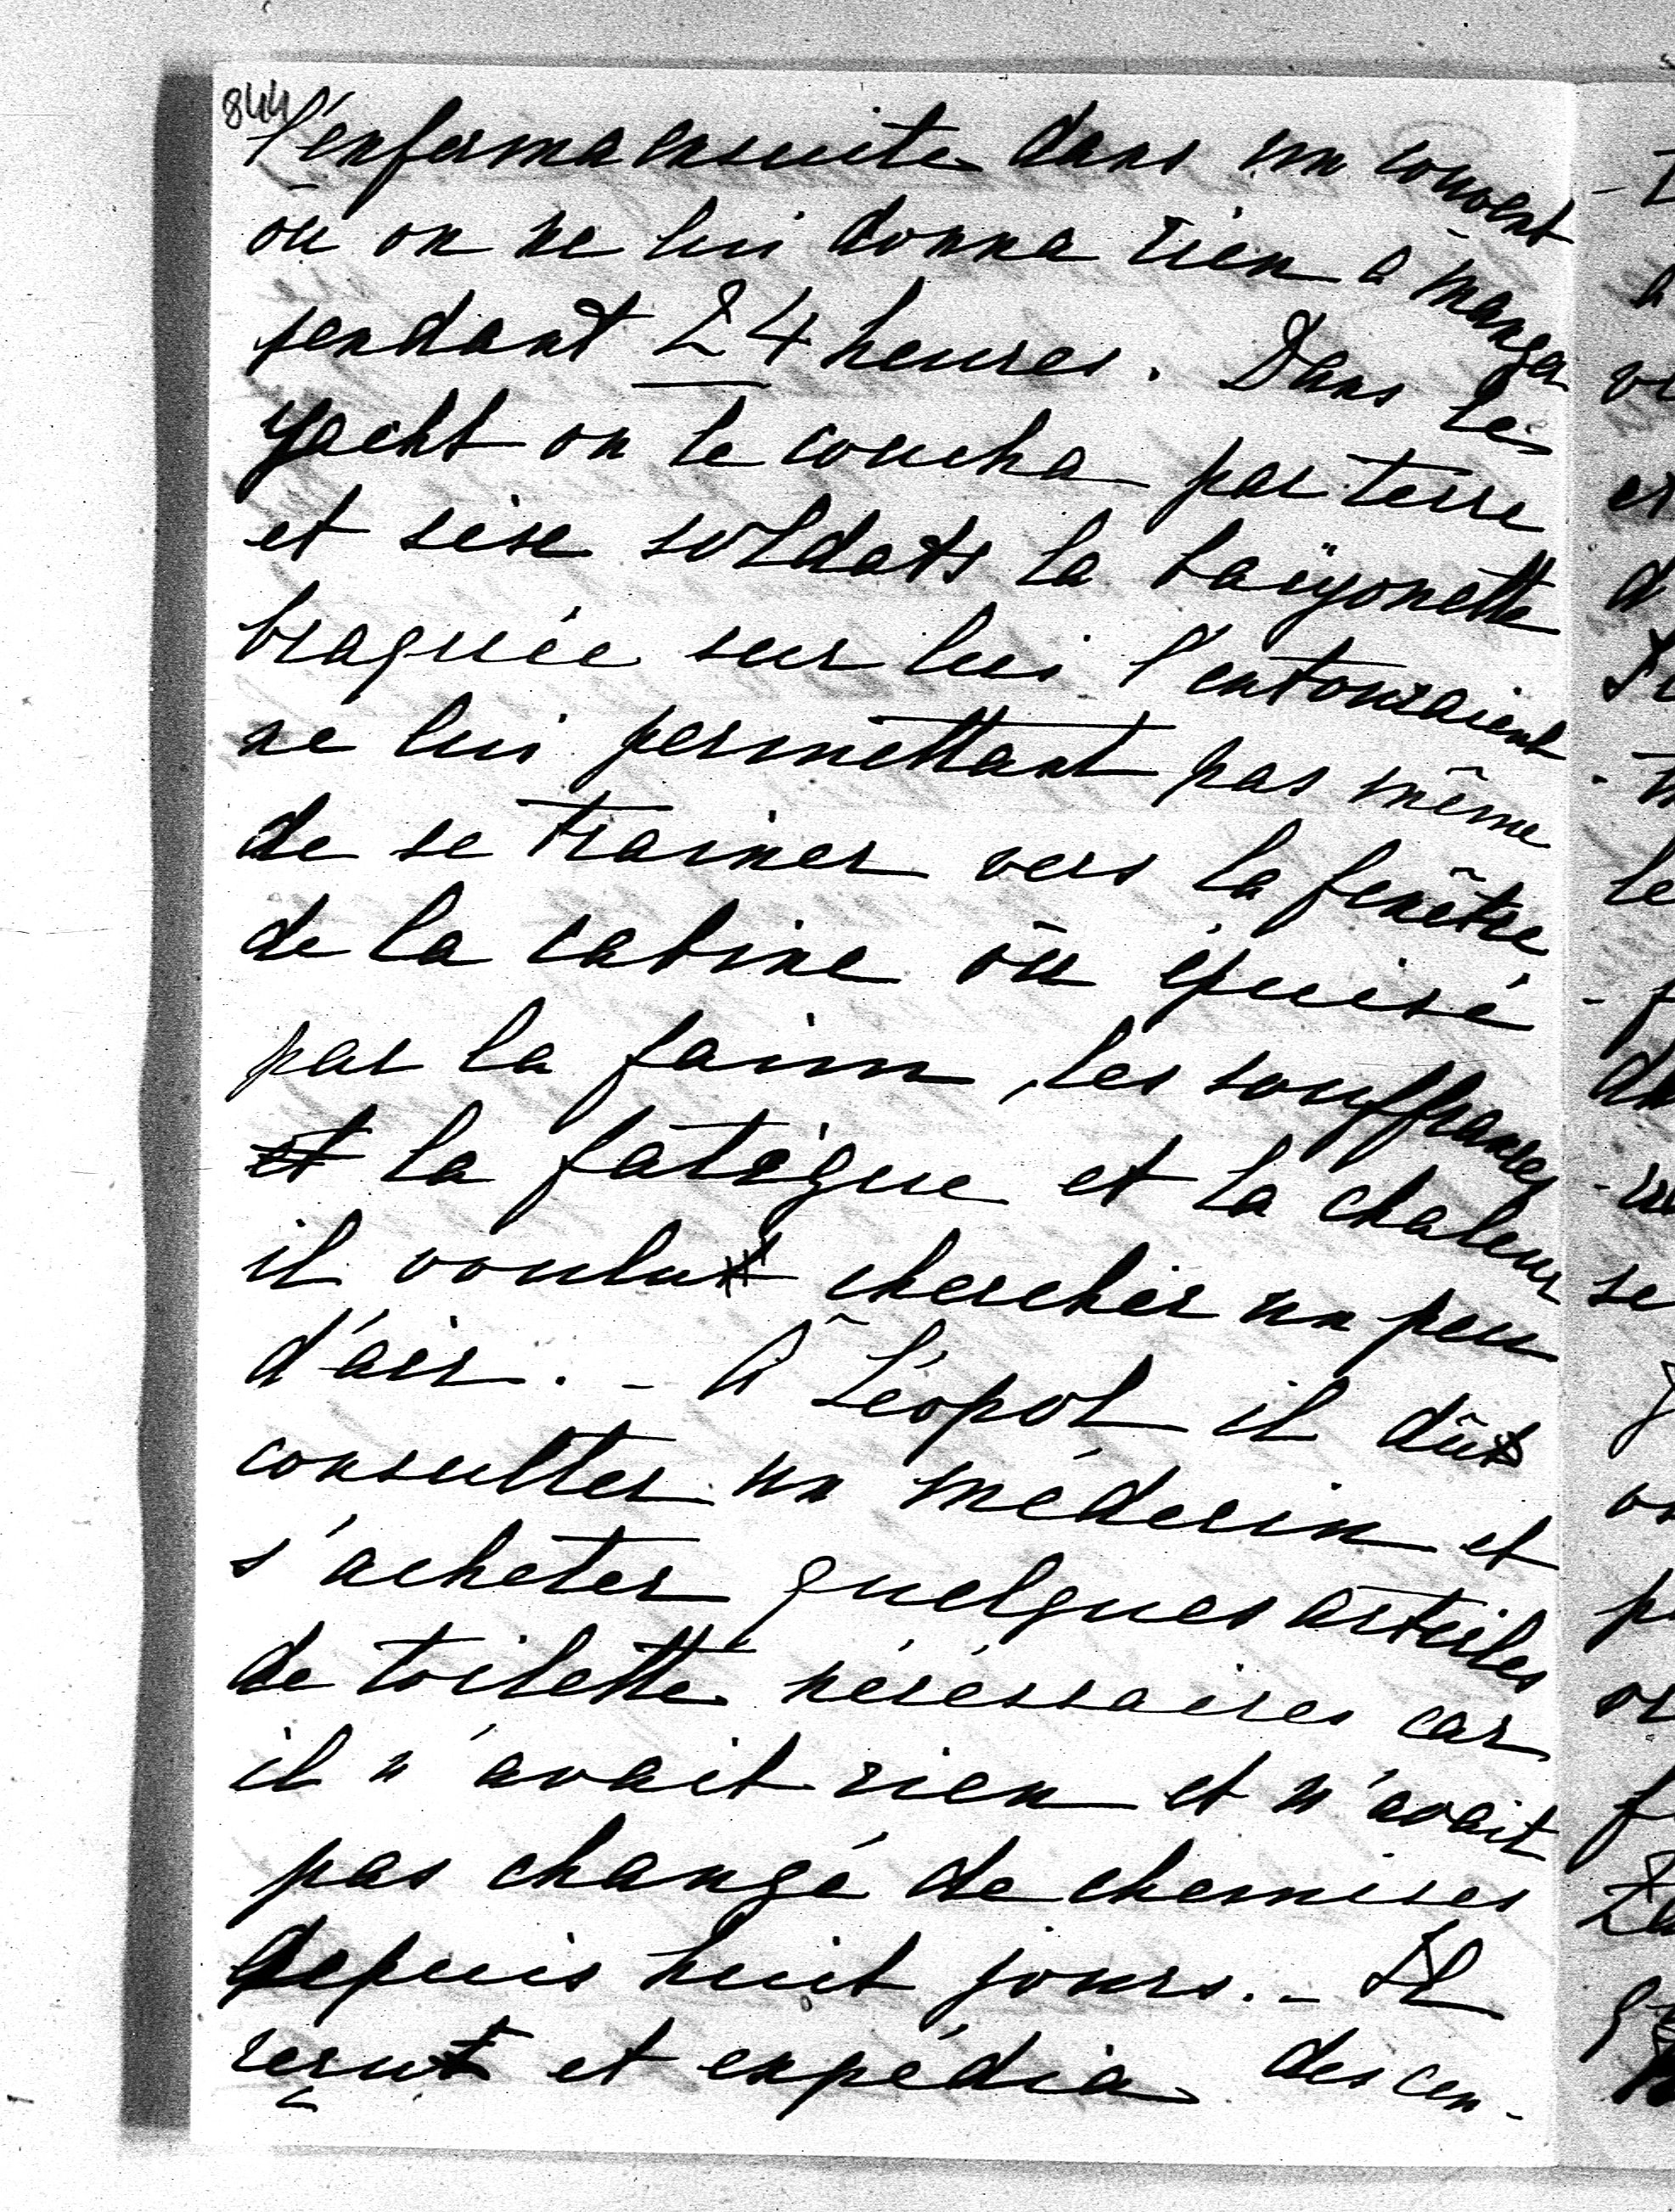 844
l'enferma ensuite dans un couvent
où on ne lui donna rien à manger
pendant 24 heures. Dans le
yacht on le coucha par terre
et seise soldats la baïyonette
braquée sur lui l'entouraient
ne lui permettant pas même
de se trainer vers la fenêtre
de la cabine où épuisé
par la faim, les souffrances
et la fatigue et la chaleur
il voulut chercher un peu
d'air. - A Léopol il dût
consulter un médecin et
s'acheter quelques articles
de toilette nécéssaires car
il n'avait rien et n'avait
pas changé de chemises
depuis huit jours. - Il
reçut et expédia des cen-